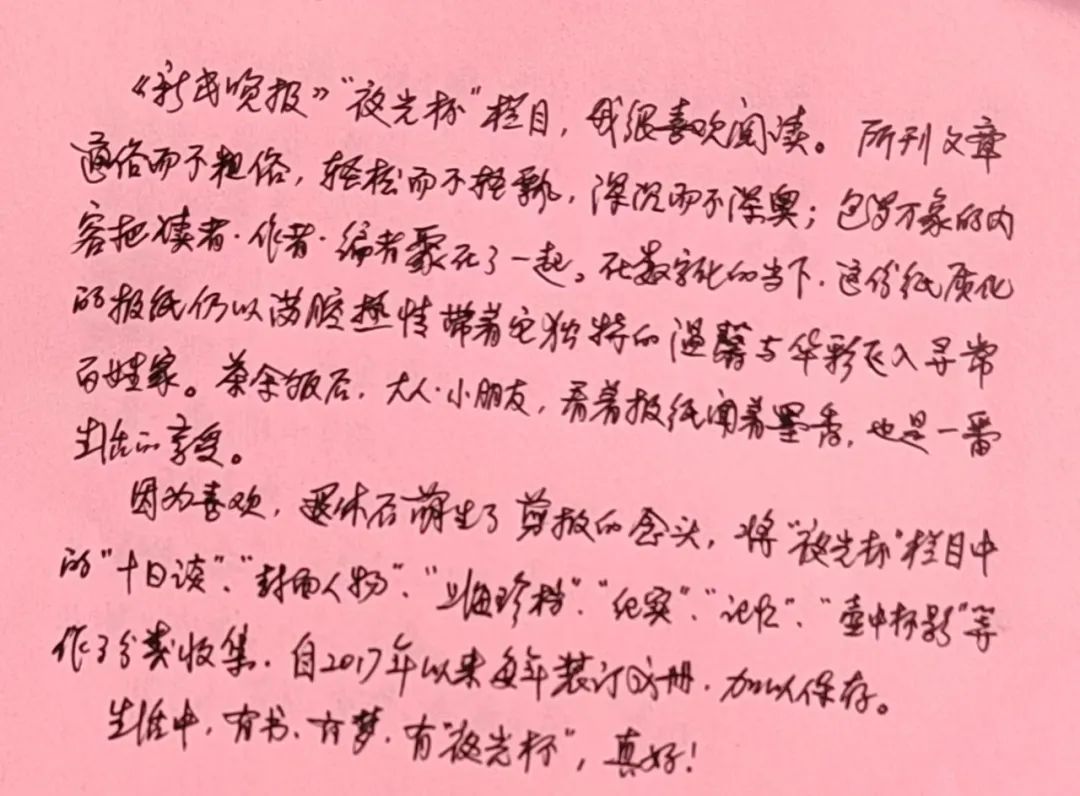 《新民晚报》“夜光杯”栏目，我很喜欢阅读。所刊文章
通俗而不粗俗，轻松而不轻飘，深沉而不深奥；包罗万象的内
容把读者·作者·编者聚在了一起。在数字化的当下，这份纸质化
的报纸仍以满腔热情带着它独特的温馨与华彩飞入寻常
百姓家。茶余饭后，大人·小朋友，看着报纸闻着墨香，也是一番
生活的享受。
因为喜欢，退休后萌生了剪报的念头，将“夜光杯”栏目中
的“十日谈”、“封面人物”、“上海珍档”、“纪实”、“记忆”、“壶中杯影”等
作了分类收集，自2017年以来每年装订成册，加以保存。
生活中，有书、有梦、有“夜光杯”，真好！